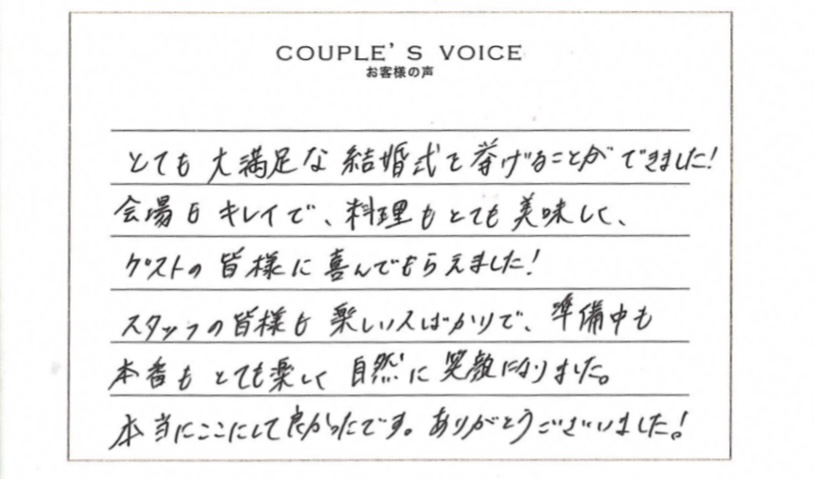 COUPLE'S VOICE
お客様の声
とても大満足な結婚式を挙げることができました!
会場もキレイで、料理もとても美味しく、
ゲストの皆様に喜んでもらえました!
スタッフの皆様も楽しい人ばかりで、準備中も
本番もとても楽しく自然に笑顔になりました。
本当にここにして良かったです。ありがとうございました!